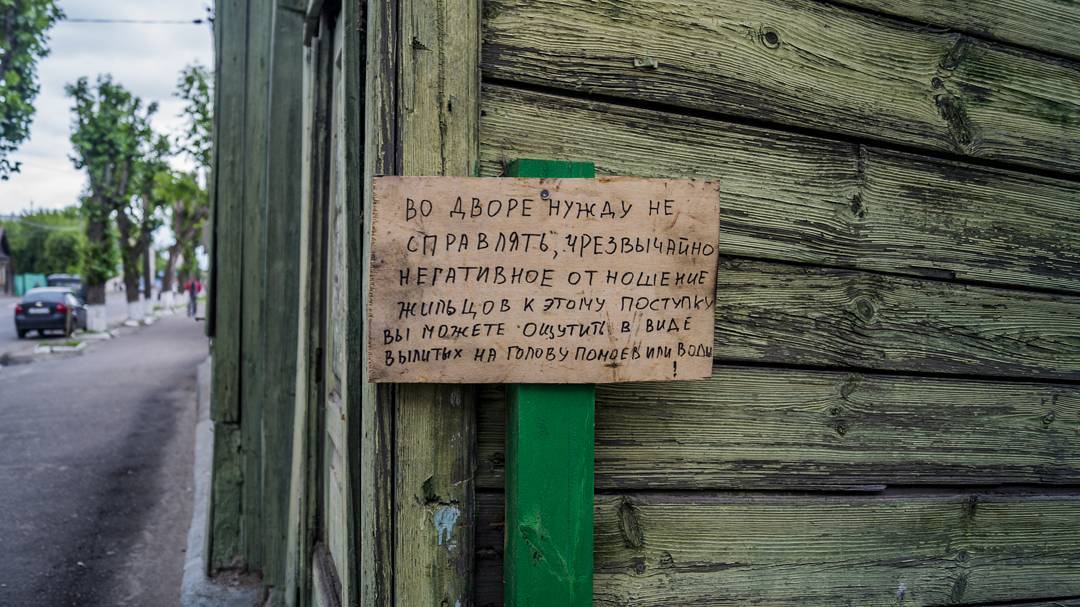 ВО ДВОРЕ НУЖДУ НЕ
СПРАВЛЯТЬ, ЧРЕЗВЫЧАЙНО
НЕГАТИВНОЕ ОТНОШЕНИЕ
ЖИЛЬЦОВ К ЭТОМУ ПОСТУПКУ
ВЫ МОЖЕТЕ ОЩУТИТЬ В ВИДЕ
ВЫЛИТЫХ НА ГОЛОВУ ПОМОЕВ ИЛИ ВОДЫ
!